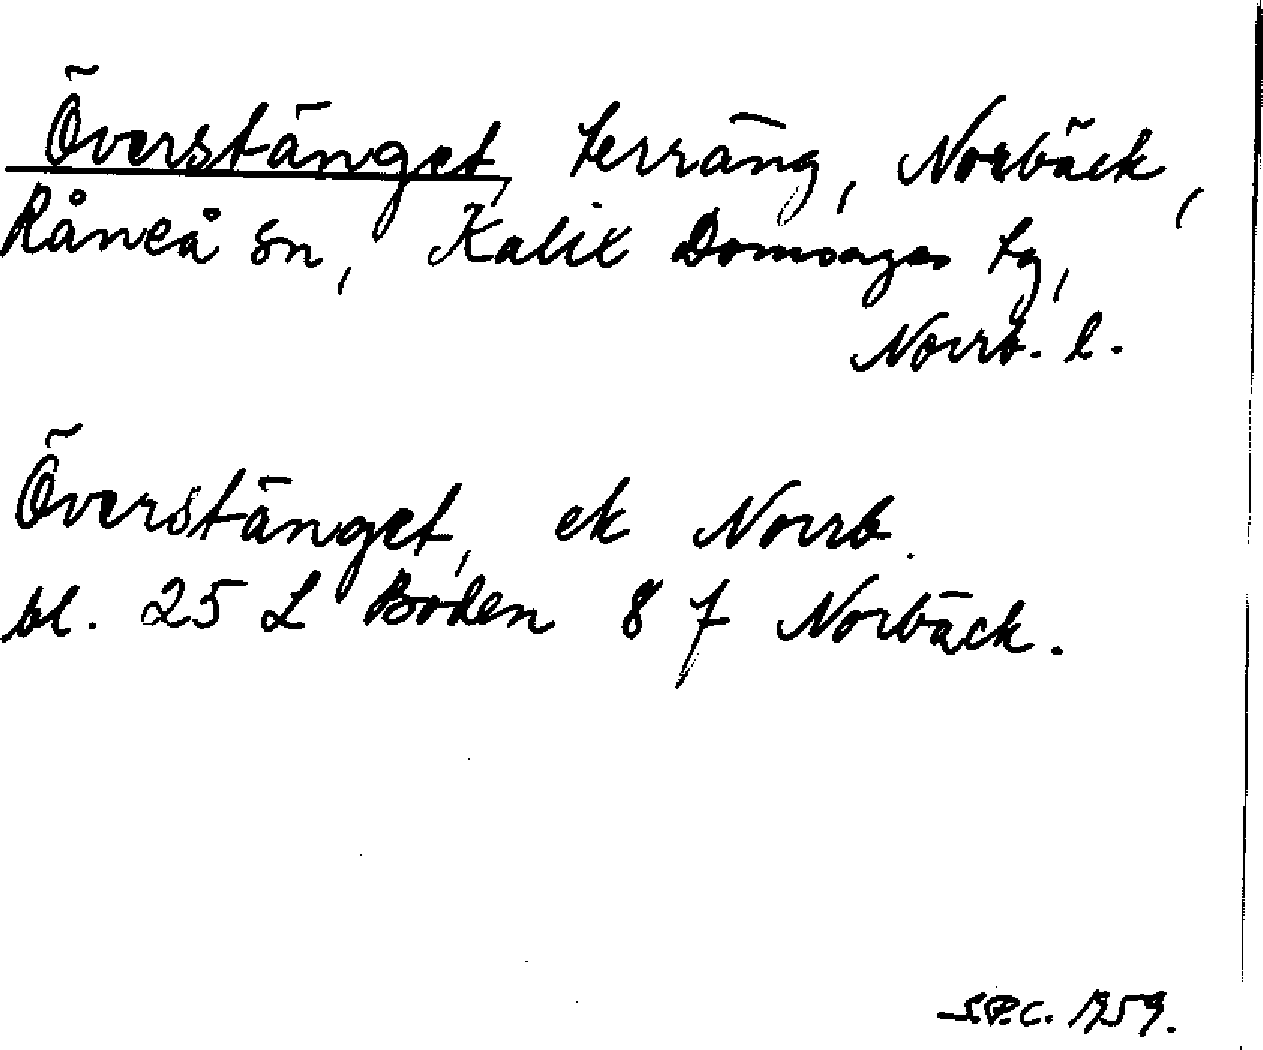 Överstänget, terräng, Norbäck,
Råneå sn, Kalix Domsagas tg,
Norrb. l.
Överstänget, ek Norrb.
bl. 25 L Boden 8 f Norbäck.
1959.